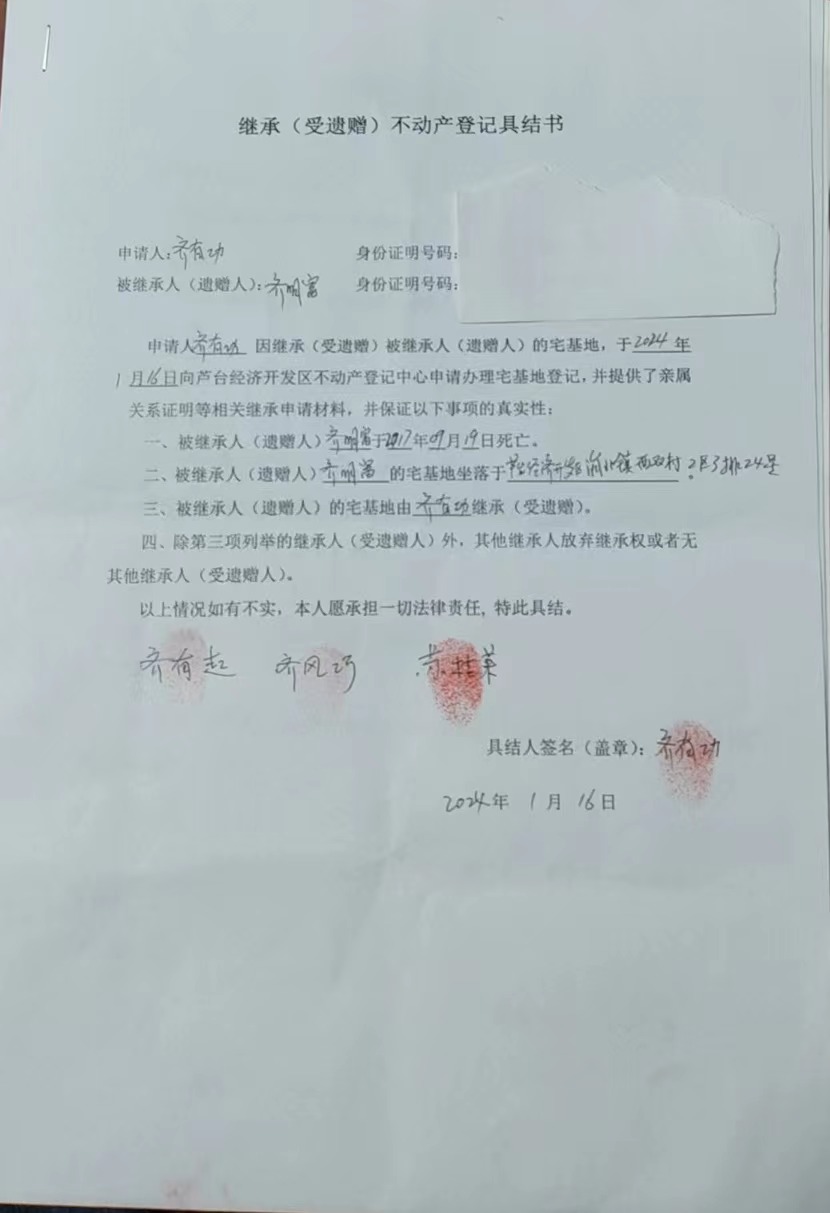 继承（受遗赠）不动产登记具结书
申请人：齐有功 身份证明号码：
被继承人（遗赠人）：齐明富 身份证明号码：
申请人齐有功 因继承（受遗赠）被继承人（遗赠人）的宅基地，于2024年
1月16日向芦台经济开发区不动产登记中心申请办理宅基地登记，并提供了亲属
关系证明等相关继承申请材料，并保证以下事项的真实性：
一、被继承人（遗赠人）齐明富于2017年09月19日死亡。
二、被继承人（遗赠人）齐明富 的宅基地坐落于芦台经济开发区 镇西 村 排24号。
三、被继承人（遗赠人）的宅基地由齐有功继承（受遗赠）。
四、除第三项列举的继承人（受遗赠人）外，其他继承人放弃继承权或者无
其他继承人（受遗赠人）。
以上情况如有不实，本人愿承担一切法律责任，特此具结。
齐有起 齐风巧
具结人签名（盖章）：齐有功
2024年 1月 16日